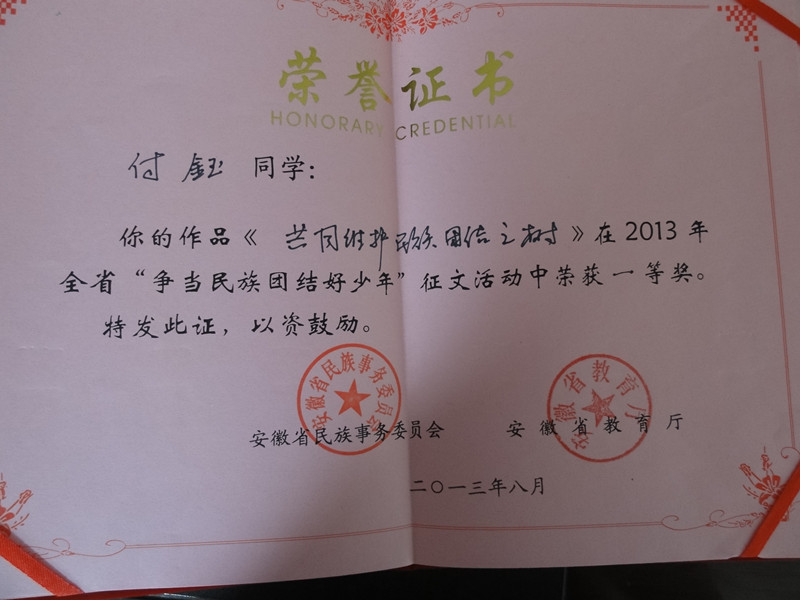 荣誉证书
HONORARY CREDENTIAL
付钰 同学：
你的作品《共同维护民族团结之树》在2013年
全省“争当民族团结好少年”征文活动中荣获一等奖。
特发此证，以资鼓励。
安徽省民族事务委员会
安徽省教育厅
安徽省民族事务委员会 安徽省教育厅
二〇一三年八月